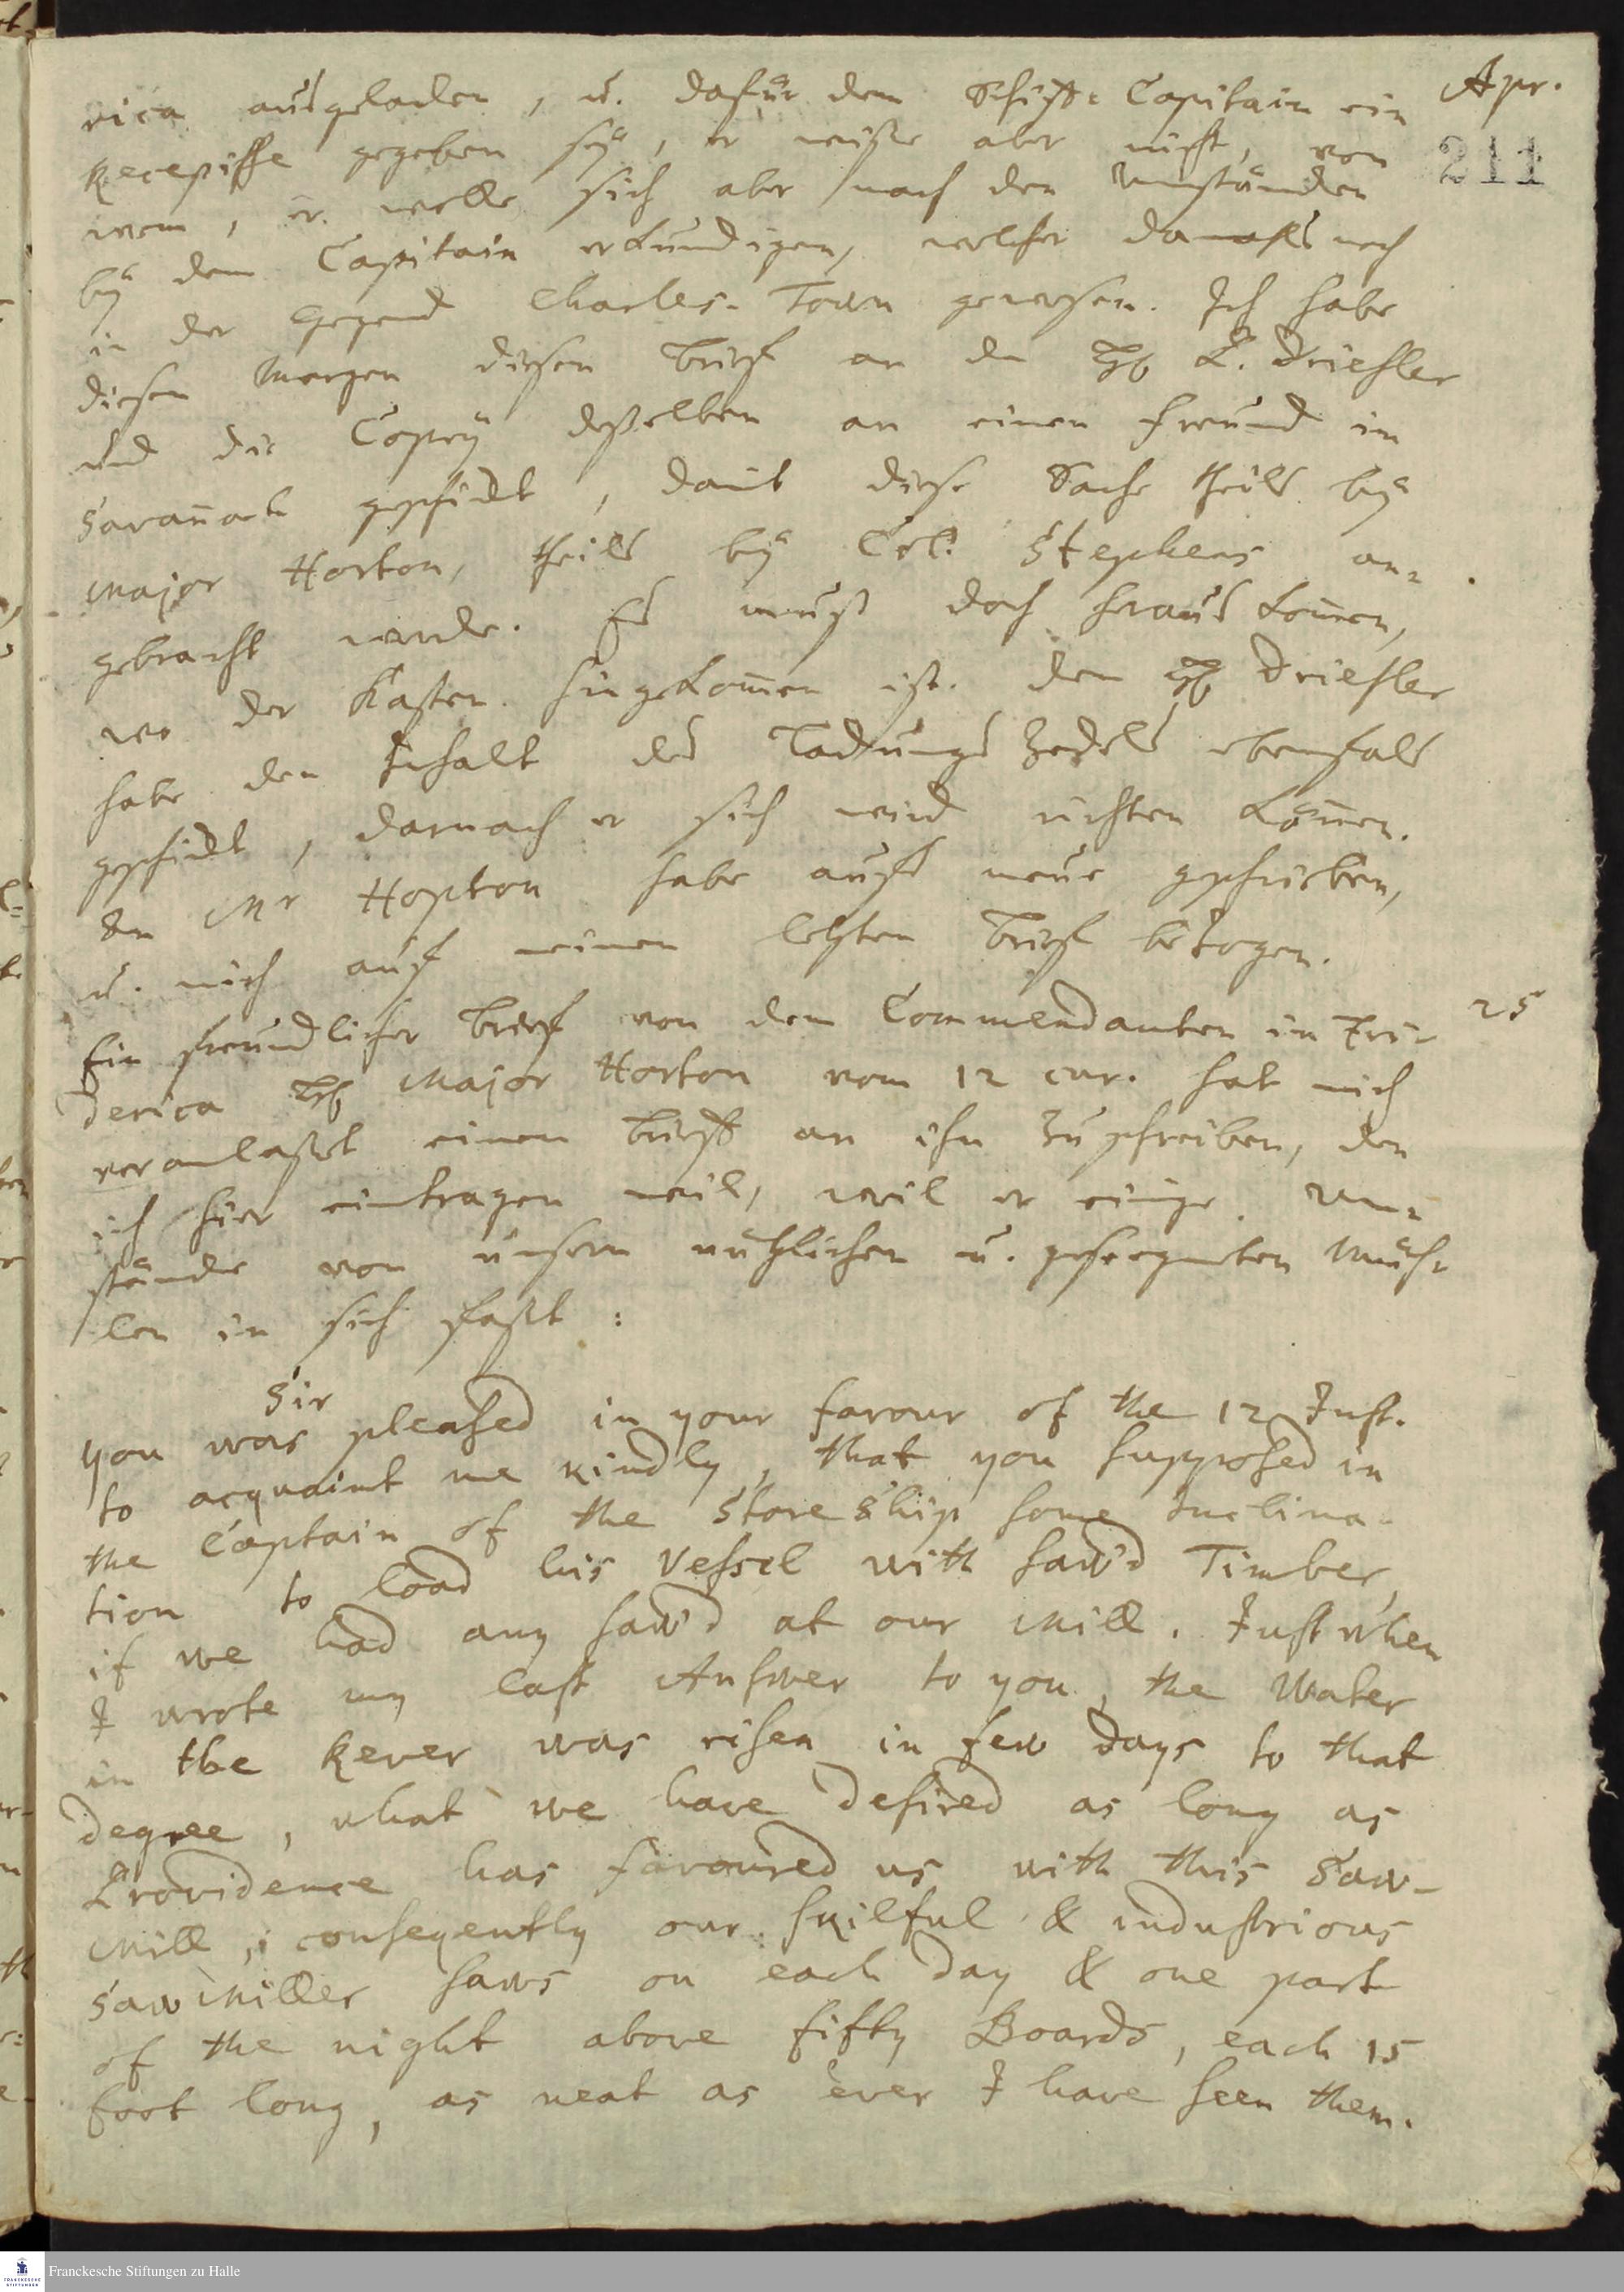 Apr.
211
rica ausgeladen, u. dafür dem Schiff: Capitain ein
Recepisse gegeben seÿ, er wisse aber nicht, von
wem, er wolle sich aber nach den Umständen
beÿ dem Capitain erkundigen, welcher damals noch
in der Gegend Charles-Town gewesen. Ich habe
diesen Morgen diesen Brief an den H L. Driesler
und die Copeÿ deßelben an einen Freund in
Savañach geschickt, damit diese Sache theils beÿ
Major Horton, theils beÿ Col: Stephens an-
gebracht werde. Es muß doch heraus kom̄en,
wo der Kasten hingekom̄en ist. Dem H Driesler
habe den Inhalt des Ladungs Zedels ebenfals
geschickt, darnach er sich wird richten kön̄en.
An Mr Hopton habe aufs neue geschrieben,
u. mich auf meinen letzten Brief bezogen.
25
Ein freundlicher Brief von dem Commendanten in Fri-
derica H Major Horton vom 12 cur. hat mich
veranlaßet einen Brief an ihn zu schreiben, den
ich hier eintragen will, weil er einige Um-
stände von unsern nützlichen u. gesegneten Müh-
len in sich faßt:
Sir
You was pleased in your favour of the 12 Inst.
to acquaint me kindly, that you supposed in
the Captain of the Store Ship some Inclina-
tion to load his Vessel with saw'd Timber,
if we had any saw'd at our Mill. Just when
I wrote my last Answer to you, the Water
in the Rever was risen in few Days to that
Degree, what we have desired as long as
Providence has favoured us with this Saw-
Mill, consequently our skilful & industrious
Saw Miller saws on each Day & one part
of the night above fifty Boards, each 15
foot long, as neat as ever I have seen them.
Franckesche Stiftungen zu Halle